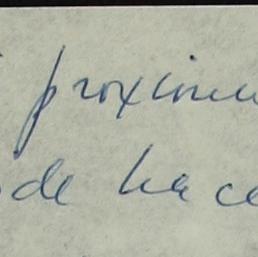 proxim
de hace